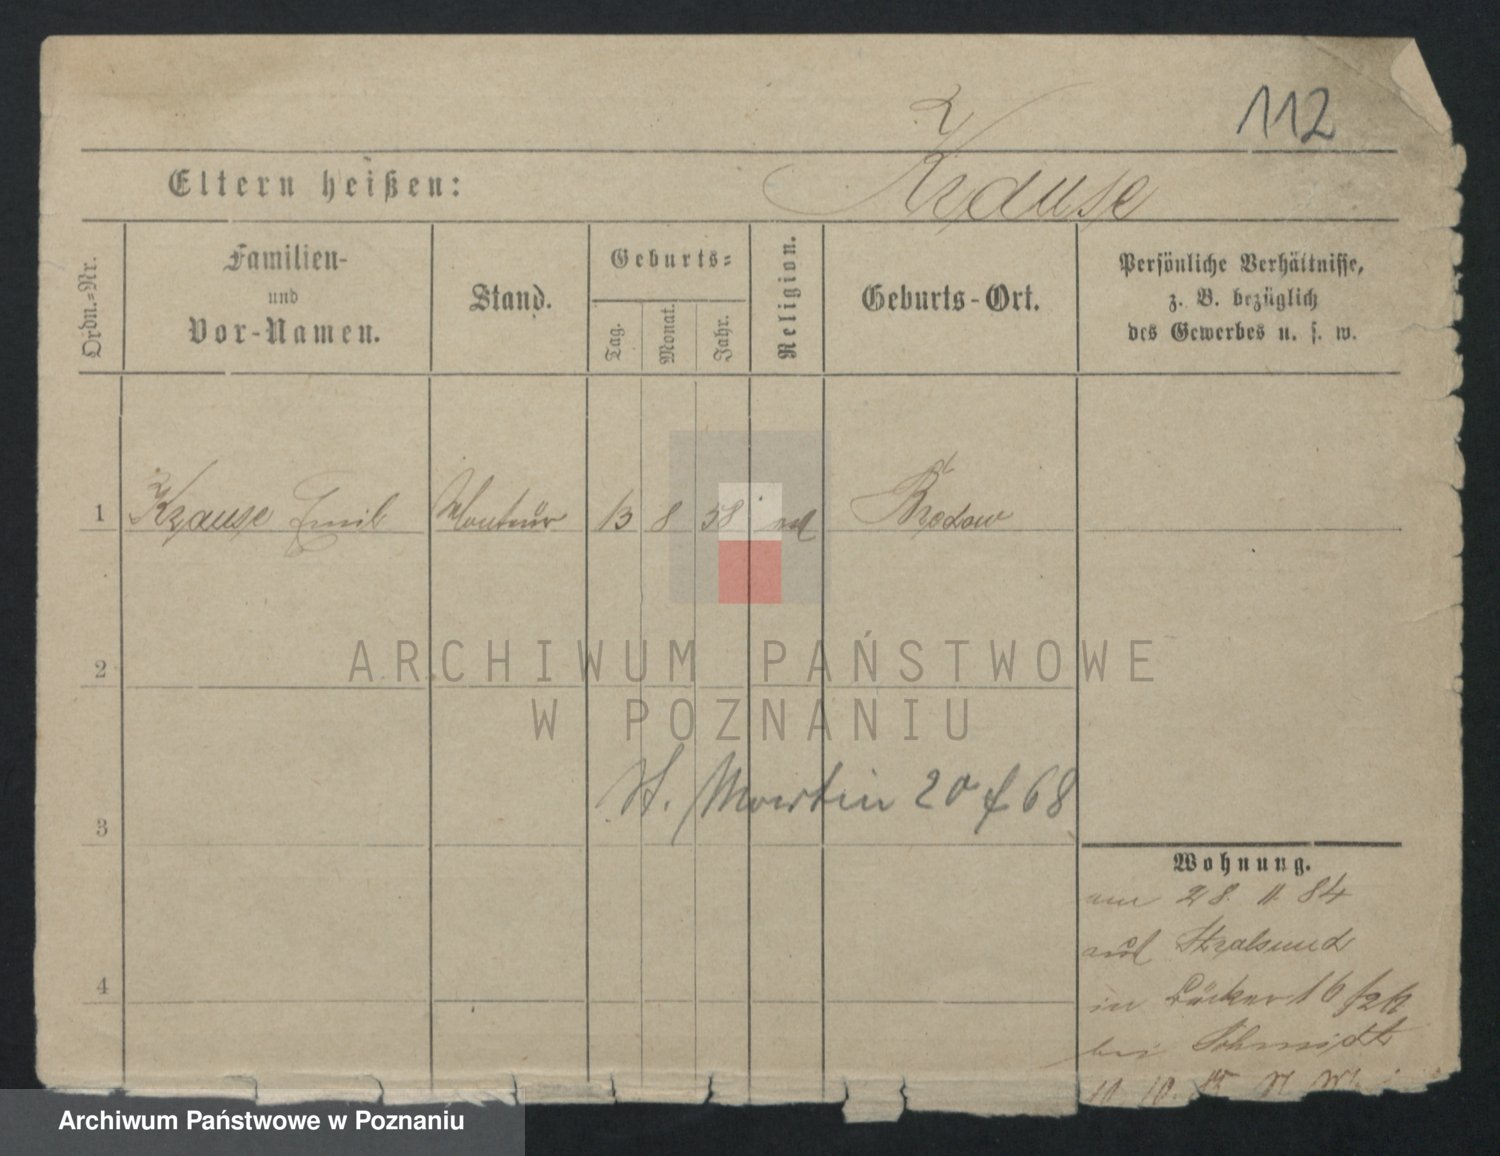 112
Eltern heißen: Krause
Ordn.-Nr.
Familien-
und
Vor-Namen.
Stand.
Geburts-
Tag.
Monat.
Jahr.
Religion.
Geburts-Ort.
Persönliche Verhältnisse,
z. B. bezüglich
des Gewerbes u. s. w.
1 Krause Emil Monteur 13 8 58
2
ARCHIWUM PAŃSTWOWE
W POZNANIU
St. Martin 20 68
3
Wohnung.
28. 11. 84
Stralsund
4
in Bäcker 16
bei Schmidt
10. 10.
Archiwum Państwowe w Poznaniu